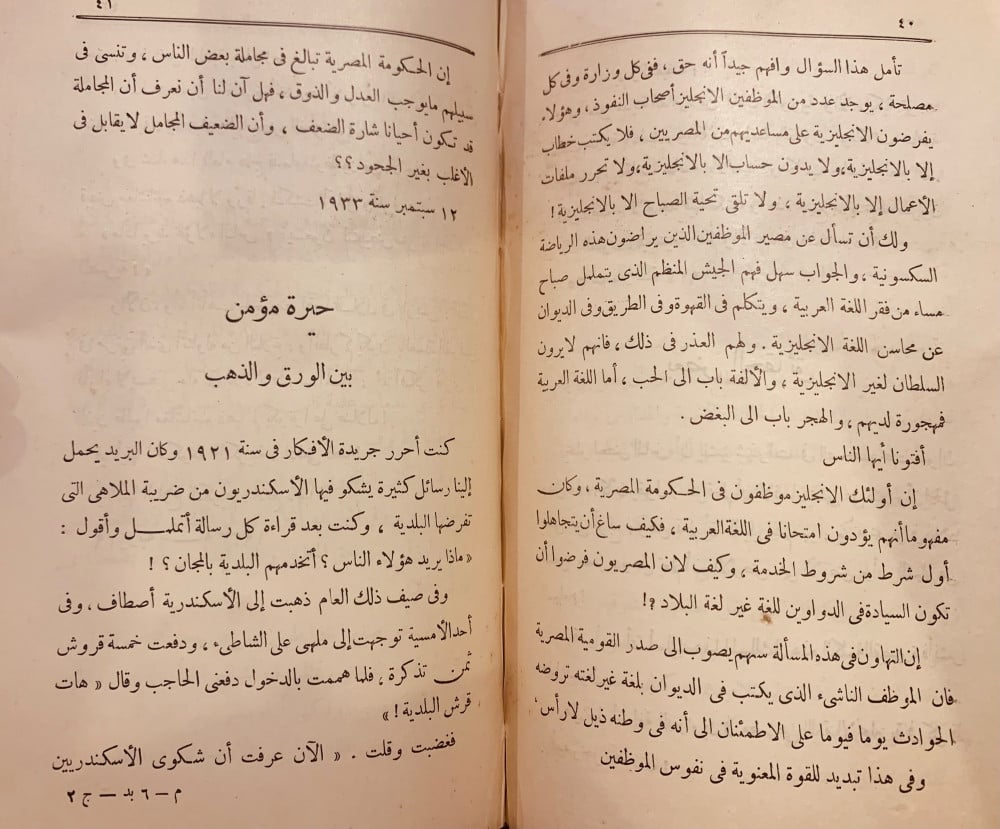 ٤٠
تأمل هذا السؤال وافهم جيداً أنه حق ، ففى كل وزارة وفى كل
مصلحة ، يوجد عدد من الموظفين الانجليز أصحاب النفوذ ، وهؤلاء
يفرضون الانجليزية على مساعديهم من المصريين ، فلا يكتب خطاب
إلا بالانجليزية ، ولا يدون حساب الا بالانجليزية ، ولا تحرر ملفات
الأعمال إلا بالانجليزية ، ولا تلقى تحية الصباح الا بالانجليزية !
ولك أن تسأل عن مصير الموظفين الذين يراضون هذه الرياضة
السكسونية ، والجواب سهل فهم الجيش المنظم الذى يتململ صباح
مساء من فقر اللغة العربية ، ويتكلم فى القهوة وفى الطريق وفى الديوان
عن محاسن اللغة الانجليزية . ولهم العذر فى ذلك ، فانهم لا يرون
السلطان لغير الانجليزية ، والألفة باب الى الحب ، أما اللغة العربية
فمهجورة لديهم ، والهجر باب الى البغض .
أفتونا أيها الناس
إن أولئك الانجليز موظفون فى الحكومة المصرية ، وكان
مفهوما أنهم يؤدون امتحانا فى اللغة العربية ، فكيف ساغ أن يتجاهلوا
أول شرط من شروط الخدمة ، وكيف لان المصريون فرضوا أن
تكون السيادة فى الدواوين للغة غير لغة البلاد ؟!
إن التهاون فى هذه المسألة سهم يصوب الى صدر القومية المصرية
فان الموظف الناشىء الذى يكتب فى الديوان بلغة غير لغته تروضه
الحوادث يوما فيوما على الاطمئنان الى أنه فى وطنه ذيل لا رأس ،
وفى هذا تبديد للقوة المعنوية فى نفوس الموظفين
٤١
إن الحكومة المصرية تبالغ فى مجاملة بعض الناس ، وتنسى فى
سبيلهم ما يوجب العدل والذوق ، فهل آن لنا أن نعرف أن المجاملة
قد تكون أحيانا شارة الضعف ، وأن الضعيف المجامل لا يقابل فى
الأغلب بغير الجحود ؟؟
١٢ سبتمبر سنة ١٩٣٣
حيرة مؤمن
بين الورق والذهب
كنت أحرر جريدة الأفكار فى سنة ١٩٢١ وكان البريد يحمل
إلينا رسائل كثيرة يشكو فيها الأسكندريون من ضريبة الملاهى التى
تفرضها البلدية ، وكنت بعد قراءة كل رسالة أتململ وأقول :
« ماذا يريد هؤلاء الناس ؟ أتخدمهم البلدية بالمجان ؟ !
وفى صيف ذلك العام ذهبت إلى الأسكندرية أصطاف ، وفى
أحد الأمسية توجهت إلى ملهى على الشاطىء ، ودفعت خمسة قروش
ثمن تذكرة ، فلما هممت بالدخول دفعنى الحاجب وقال « هات
قرش البلدية ! »
فغضبت وقلت . « الآن عرفت أن شكوى الأسكندريين
م — ٦ بد — ج ٢